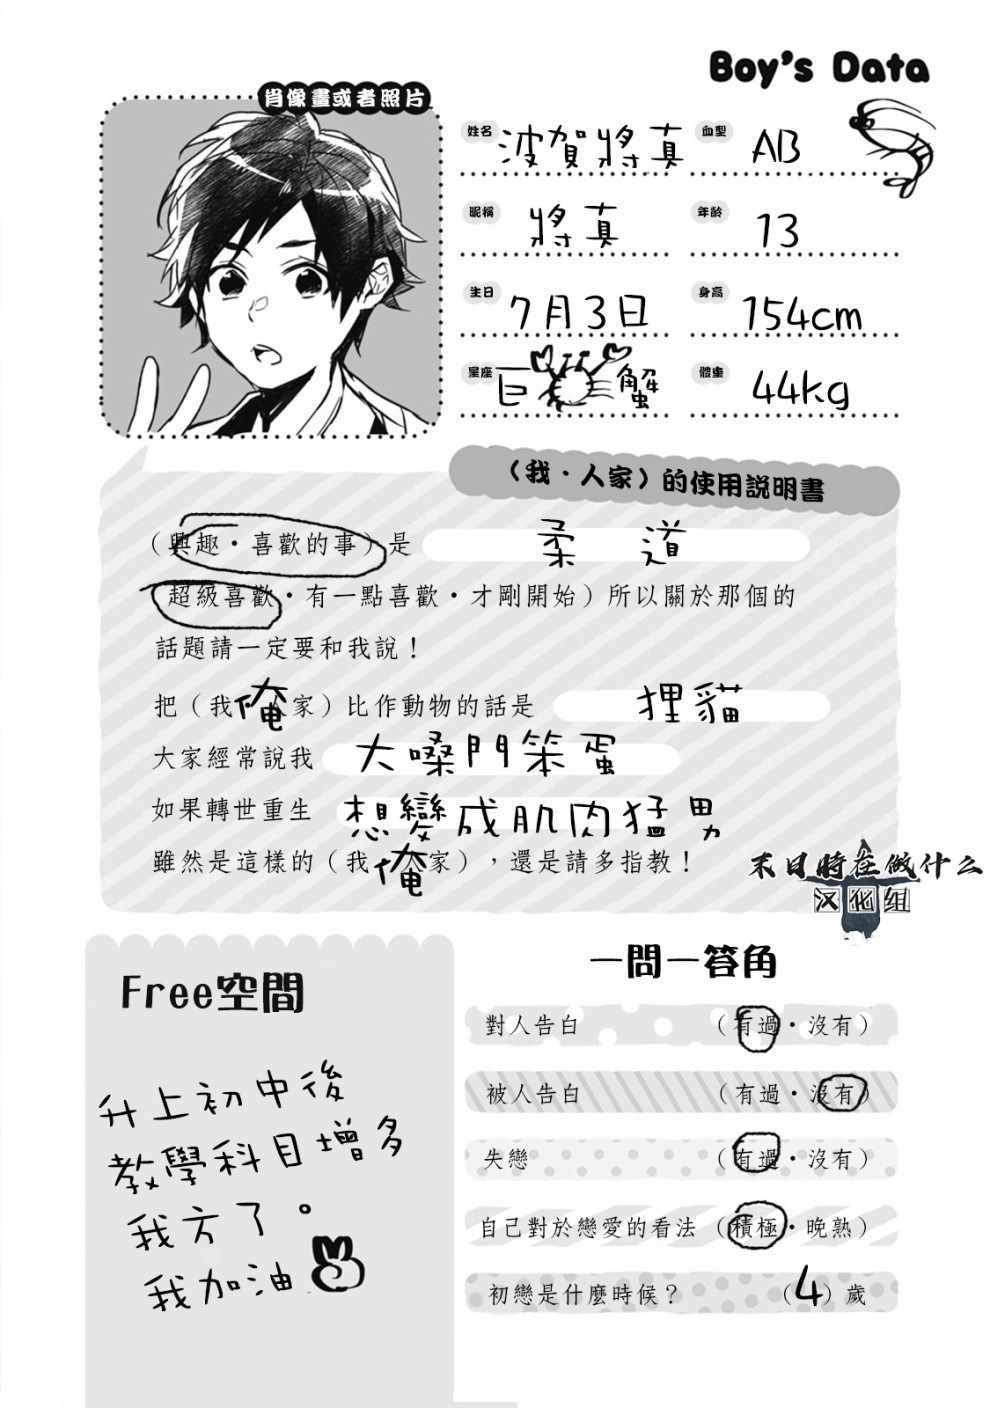 Boy's Data
肖像畫或者照片
姓名 波賀將真 血型 AB
昵稱 將真 年齡 13
生日 7月3日 身高 154cm
星座 巨蟹 體重 44kg
（我・人家）的使用說明書
（興趣・喜歡的事）是 柔道
（超級喜歡・有一點喜歡・才剛開始）所以關於那個的
話題請一定要和我說！
把（我 俺 人家）比作動物的話是 狸貓
大家經常說我 大嗓門笨蛋
如果轉世重生 想變成肌肉猛男
雖然是這樣的（我 俺 人家），還是請多指教！
末日時在做什么
汉化组
Free空間
升上初中後
教學科目增多
我方了。
我加油
一問一答角
對人告白 （有過・沒有）
被人告白 （有過・沒有）
失戀 （有過・沒有）
自己對於戀愛的看法 （積極・晚熟）
初戀是什麼時候？ （4）歲